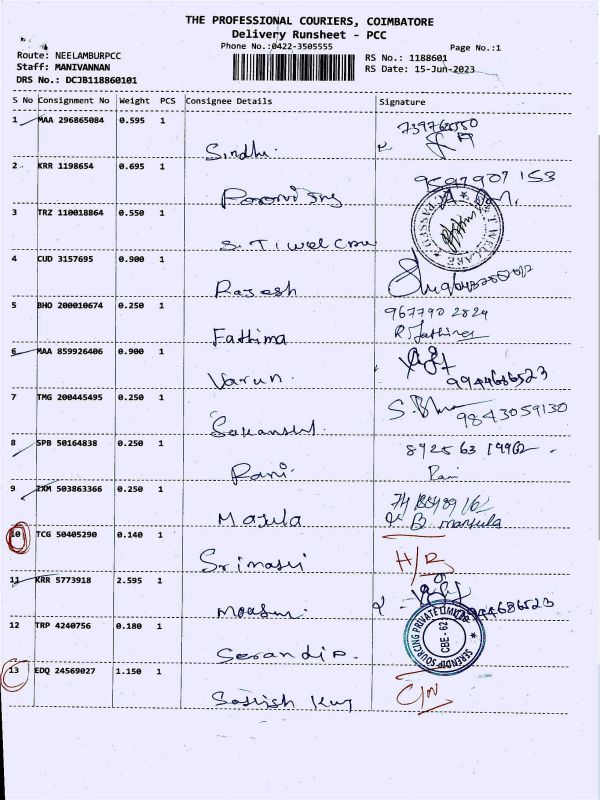 THE PROFESSIONAL COURIERS, COIMBATORE
Delivery Runsheet - PCC
Phone No.:0422-3505555 Page No.:1
Route: NEELAMBURPCC RS No.: 1188601
Staff: MANIVANNAN RS Date: 15-Jun-2023
DRS No.: DCJB118860101
S No Consignment No Weight PCS Consignee Details Signature
1 MAA 296865084 0.595 1
Sindhu.
2 KRR 1198654 0.695 1 9597907 153
3 TRZ 110018864 0.550 1
S. T i wel care
4 CUD 3157695 0.900 1
Rajesh
5 BHO 200010674 0.250 1 967790 2829
Fathima R. Fathima
6 MAA 859926406 0.900 1
Varun. 9944686523
7 TMG 200445495 0.250 1 9843059130
8 SPB 50164838 0.250 1
Rani. Rani
9 IXM 503863366 0.250 1
Majula B. manjula
10 TCG 50405290 0.140 1 H/R
11 KRR 5773918 2.595 1
12 TRP 4240756 0.180 1
Serandip. SERENDIP SOURCING PRIVATE LIMITED
CBE - 62
13 EDQ 24569027 1.150 1
Sathish Kug